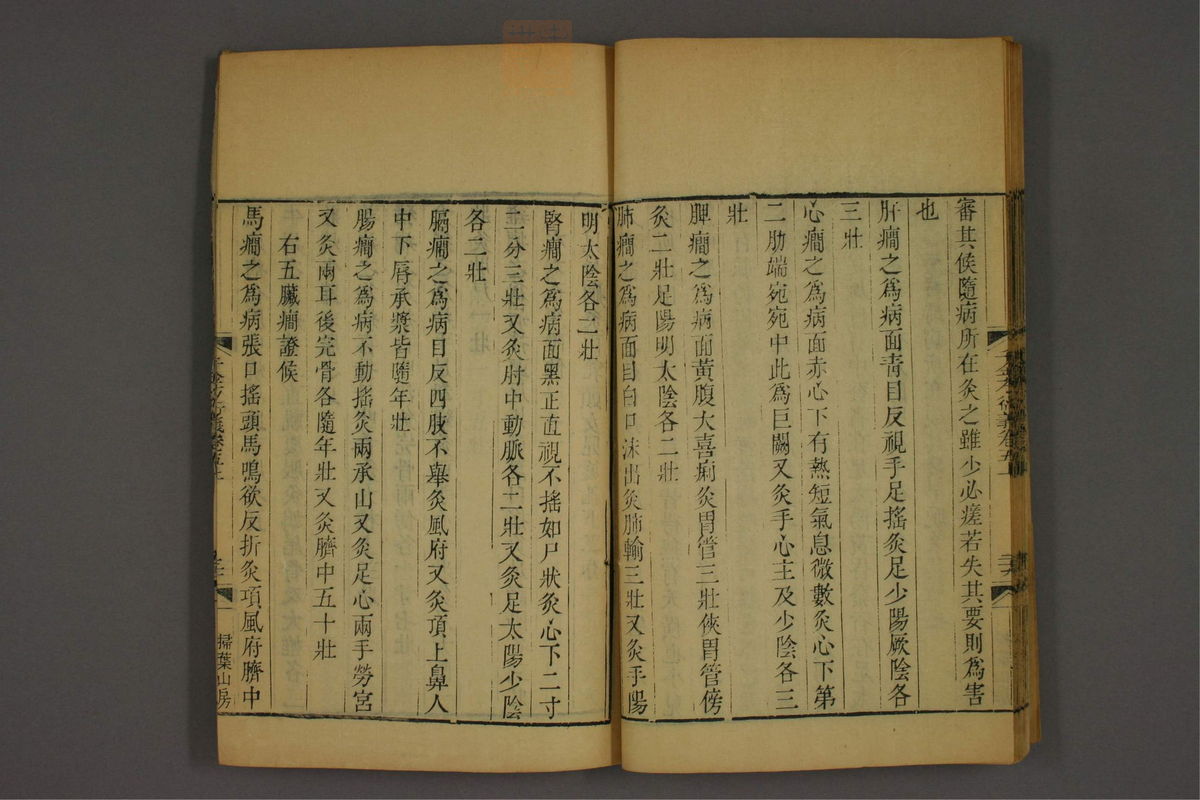 審其候隨病所在灸之雖少必瘥若失其要則爲害
也
肝癇之爲病面青目反視手足搖灸足少陽厥陰各
三壯
心癇之爲病面赤心下有熱短氣息微數灸心下第
二肋端宛宛中此爲巨闕又灸手心主及少陰各三
壯
脾癇之爲病面黃腹大喜痢灸胃管三壯俠胃管傍
灸二壯足陽明太陰各二壯
肺癇之爲病面目白口沫出灸肺輸三壯又灸手陽
明太陰各二壯
腎癇之爲病面黑正直視不搖如尸狀灸心下二寸
二分三壯又灸肘中動脈各二壯又灸足太陽少陰
各二壯
膈癇之爲病目反四肢不舉灸風府又灸頂上鼻人
中下脣承漿皆隨年壯
腸癇之爲病不動搖灸兩承山又灸足心兩手勞宮
又灸兩耳後完骨各隨年壯又灸臍中五十壯
右五臟癇證候
馬癇之爲病張口搖頭馬鳴欲反折灸項風府臍中
掃葉山房